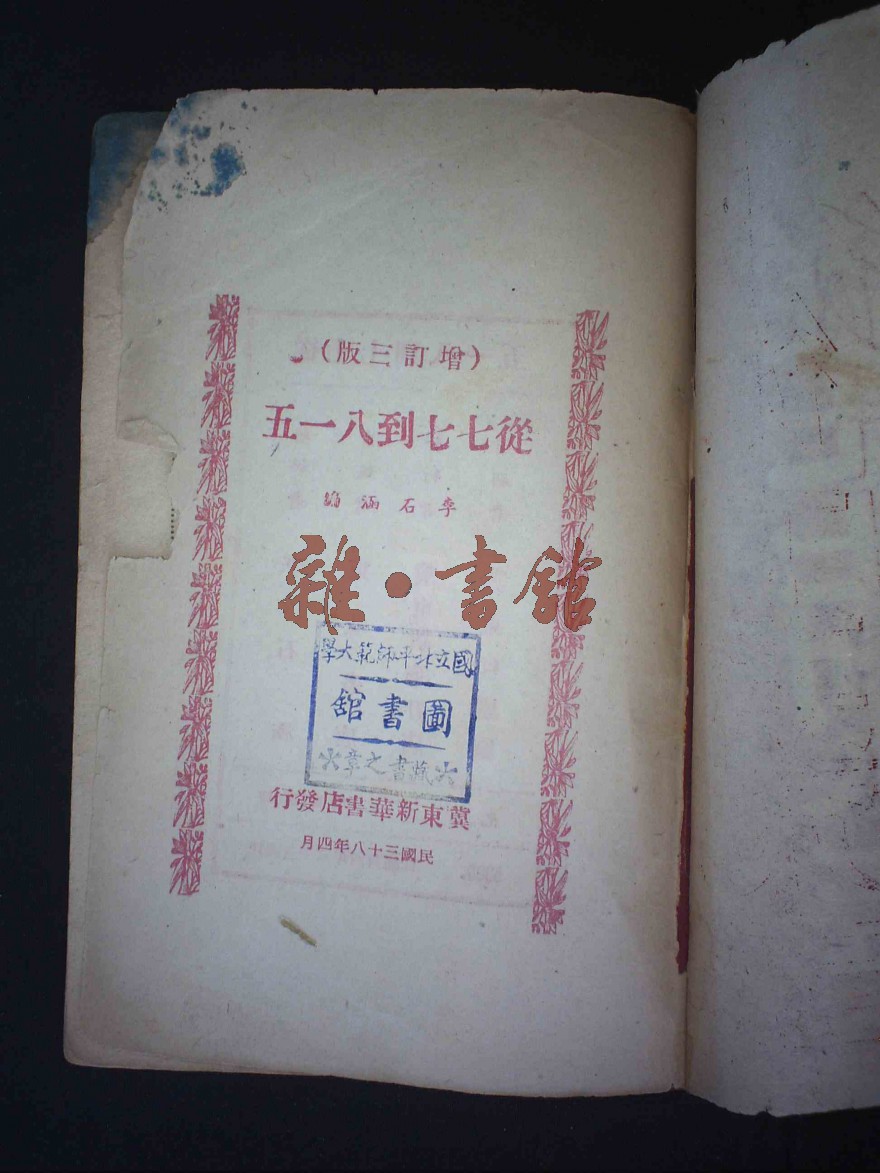 （增訂三版）
從七七到八一五
李石涵編
雜·書館
國立北平師範大學
圖書館
藏書之章
冀東新華書店發行
民國三十八年四月